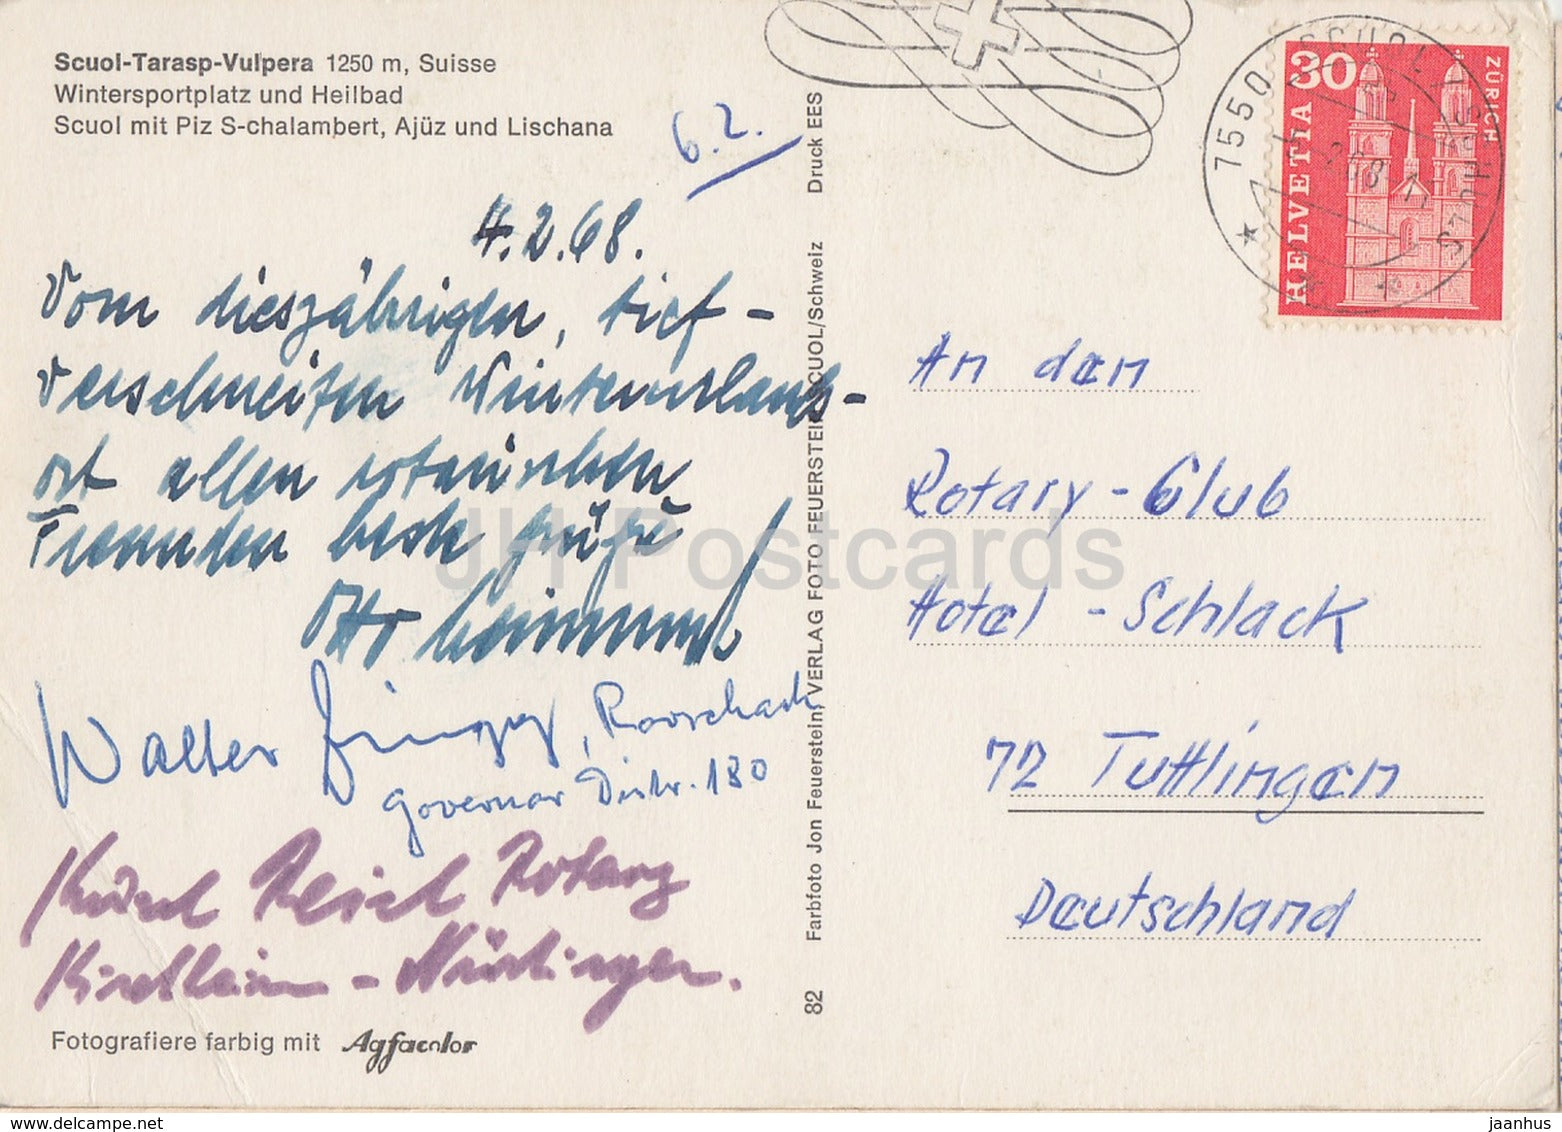 Scuol-Tarasp-Vulpera 1250 m, Suisse
Wintersportplatz und Heilbad
Scuol mit Piz S-chalambert, Ajüz und Lischana
6.2.
4.2.68.
Vom diesjährigen, tief-
verschneiten Winterurlaubs-
ort allen rotarischen
Freunden beste Grüße
Otto
Walter , Rorschach
Governor Distr. 180
Rotary
Kirchheim - Nürtingen.
Fotografiere farbig mit Agfacolor
82 Farbfoto Jon Feuerstein, VERLAG FOTO FEUERSTEIN SCUOL/Schweiz Druck EES
7550 SCUOL/SCHULS
HELVETIA
30
ZÜRICH
An den
Rotary-Club
Hotel - Schlack
72 Tuttlingen
Deutschland
JH Postcards
www.delcampe.net
jaanhus